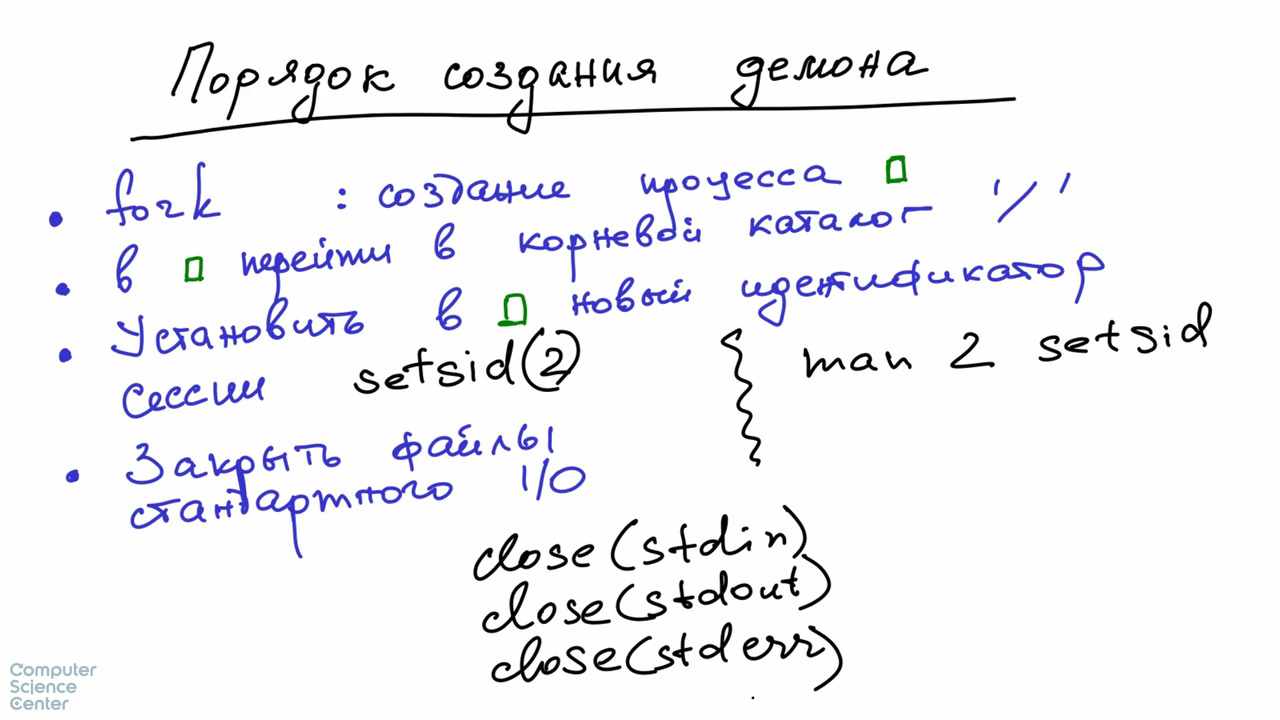 Порядок создания демона
• fork : создание процесса
• в перейти в корневой каталог '/'
• Установить в новый идентификатор
сессии setsid(2) man 2 setsid
• Закрыть файлы
стандартного I/O
close(stdin)
close(stdout)
close(stderr)
Computer
Science
Center